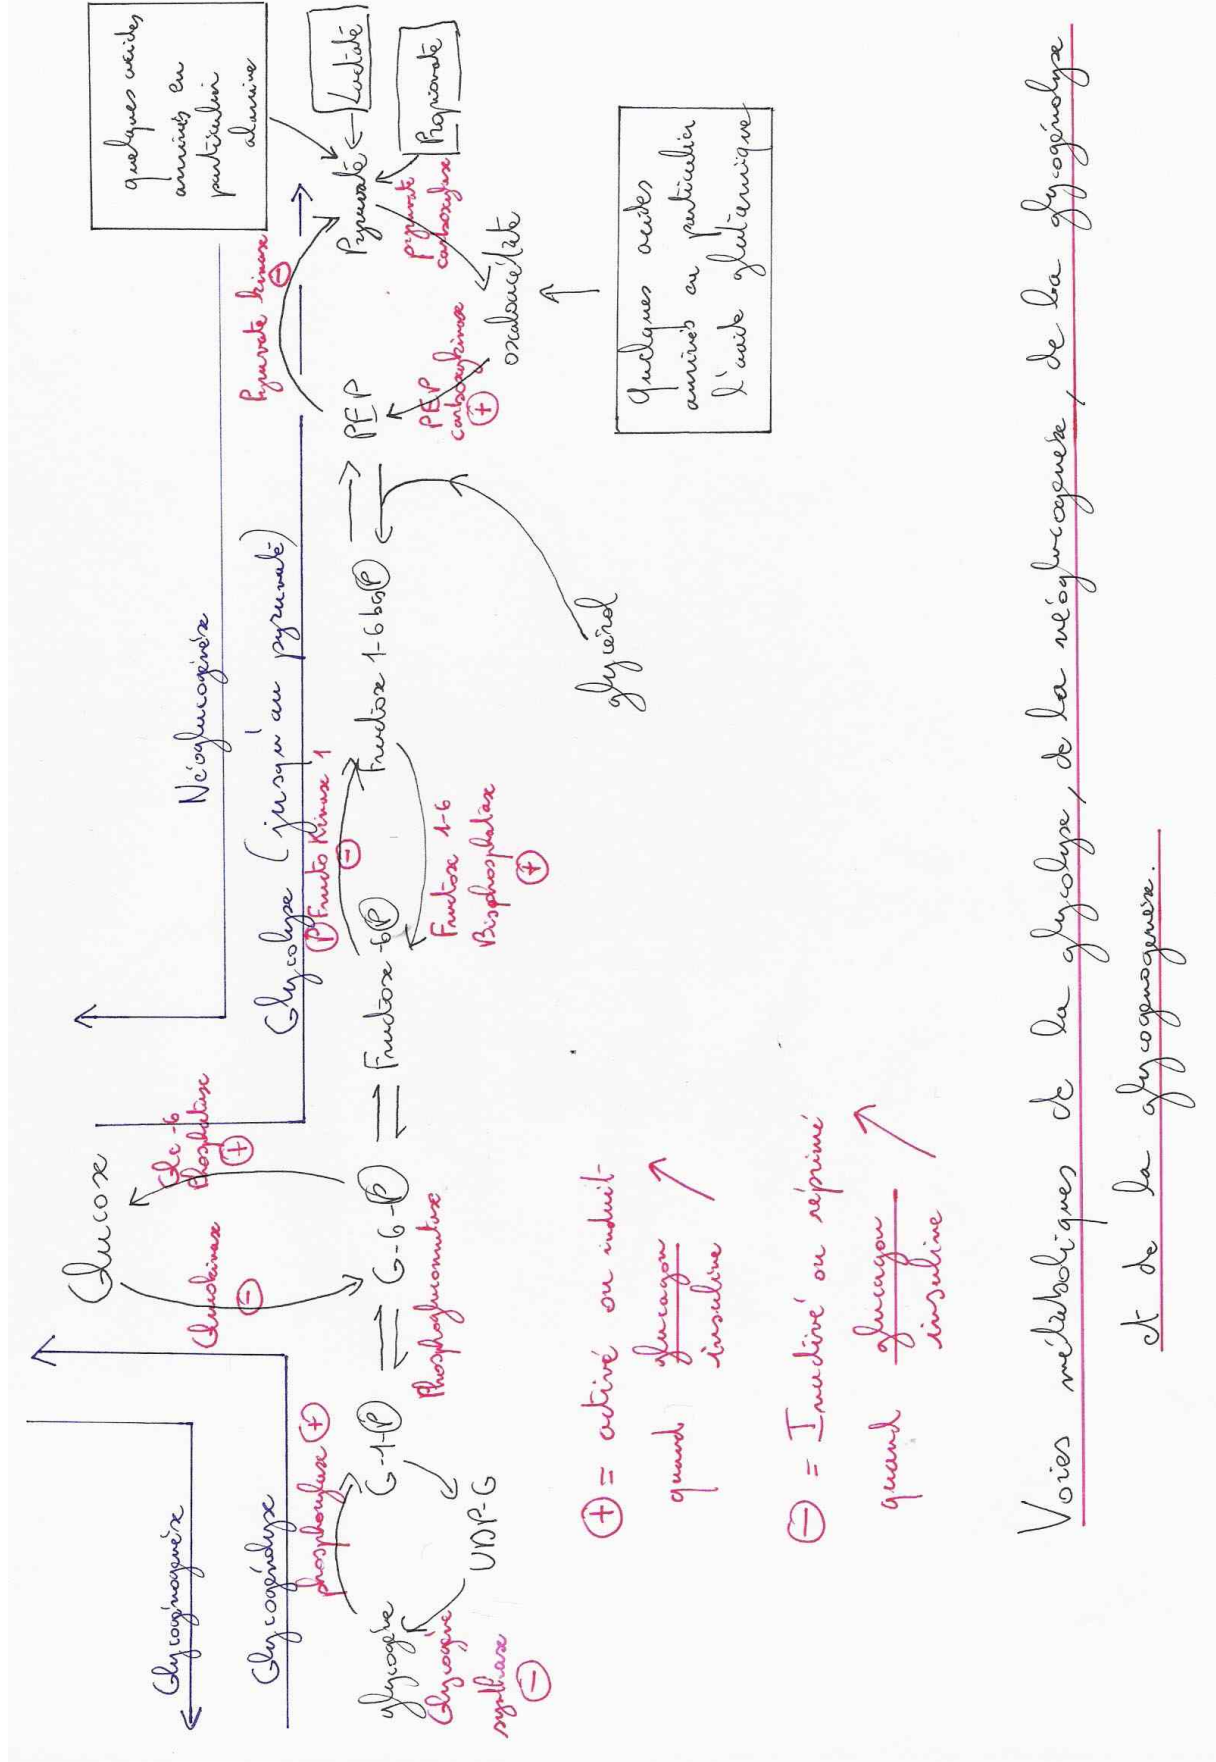 Glycogénogenèse
Glycogénolyse
Néoglucogénèse
Glycolyse (jusqu'au pyruvate)
quelques acides
aminés en
particulier
alanine
Glucose
Glucokinase
⊖
Glc-6
Phosphatase
⊕
phosphorylase ⊕
glycogène
Glycogène
synthase
⊖
G-1-Ⓟ
UDP-G
Phosphoglucomutase
G-6-Ⓟ
Fructose-6Ⓟ
Ⓟ Fructo Kinase 1
⊖
Fructose 1-6
Bisphosphatase
⊕
Fructose 1-6 bis Ⓟ
glycérol
PEP
Pyruvate kinase
⊖
PEP
carboxykinase
⊕
Pyruvate
pyruvate
carboxylase
Lactate
Propionate
oxaloacétate
Quelques acides
aminés en particulier
l'acide glutamique
⊕ = activé ou induit
quand glucagon
insuline
⊖ = Inactivé ou réprimé
quand glucagon
insuline
Voies métaboliques de la glycolyse, de la néoglucogenèse, de la glycogénolyse
et de la glycogenogenèse.